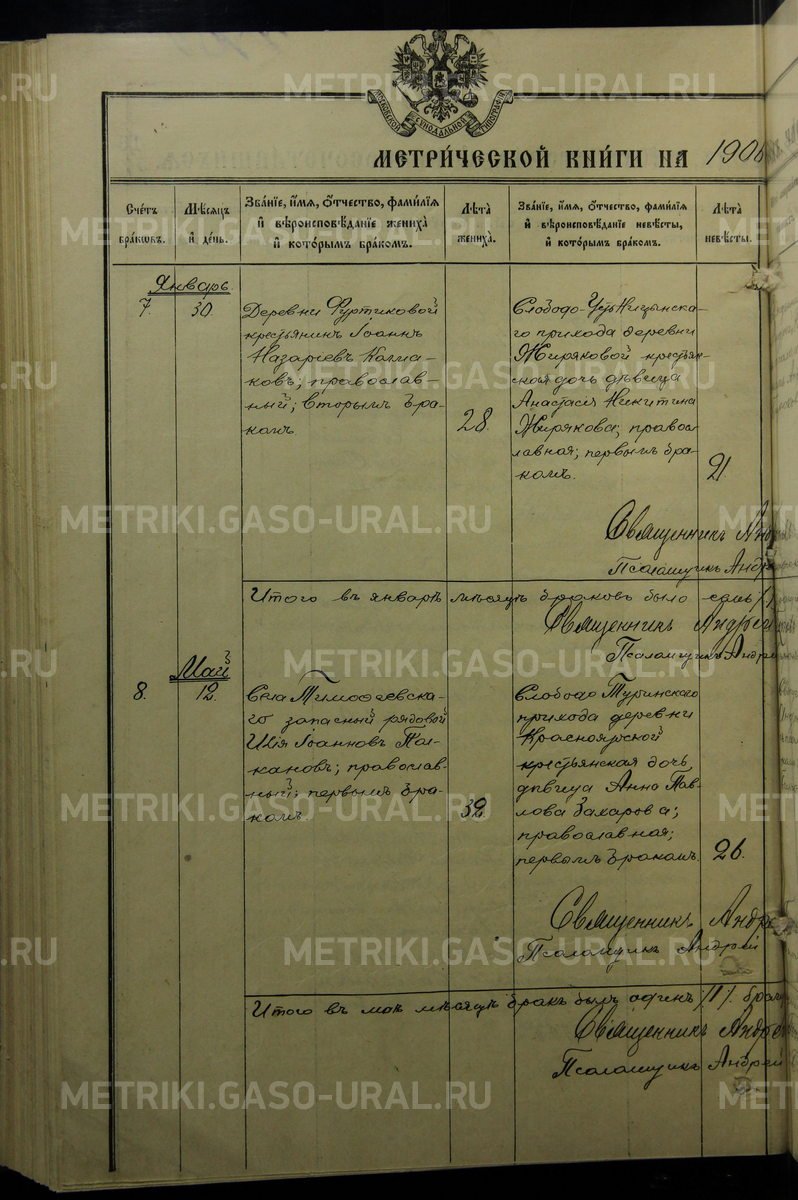 МОСКОВСКОЙ СѴНОДАЛЬНОЙ ТИПОГРАФІИ
МЕТРИ́ЧЕСКОЙ КНИ́ГИ НА 1906
Сче́тъ бра́ковъ.
Мѣ́сяцъ и́ де́нь.
Зва́нїе, и́мѧ, о́тчество, фами́лїѧ и́ вѣроисповѣ́данїе жениха̀ и́ кото́рымъ бра́комъ.
Лѣта̀ жениха̀.
Зва́нїе, и́мѧ, о́тчество, фами́лїѧ и́ вѣроисповѣ́данїе невѣ́сты, и́ кото́рымъ бра́комъ.
Лѣта̀ невѣ́сты.
Январь
7. 30.
Деревни Фуртиковой
крестьянинъ Іоаннъ
Назаріевъ Калма-
ковъ; православ-
ный; вторымъ бра-
комъ.
28.
Слободо-Усть-Ницынска-
го прихода деревни
Жиряковой крестьян-
ская дочь дѣвица
Анастасія Никитина
Жирякова; правос-
лавная; первымъ бра-
комъ.
21
Священникъ Андр
Псаломщикъ Андре
Итого въ январѣ мѣсяцѣ браковъ было семь /7
Священникъ Андрей
Псаломщикъ Андрей
Май
8. 12.
Села Тимофеевска-
го запасный рядовой
Илія Іоанновъ Пол-
кановъ; православ-
ный; первымъ бра-
комъ.
32.
Слободо Туринскаго
прихода деревни
Красноярской
крестьянская дочь,
дѣвица Анна Пав-
лова Захарова;
православная;
первымъ бракомъ.
26.
Священникъ Андре
Псаломщикъ Андрей
Итого въ маѣ мѣсяцѣ бракъ былъ одинъ /1/. брач
Священникъ Андре
Псаломщикъ Андрей
METRIKI.GASO-URAL.RU